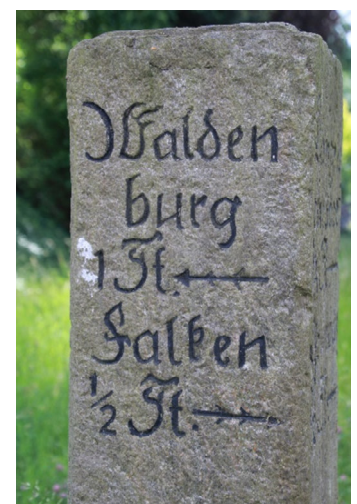 Walden
burg
1 St. ←
Falken
1/2 St. →